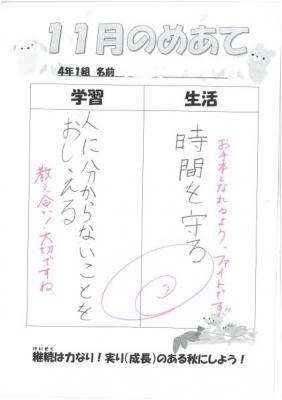 11月のめあて
4年1組 名前
学習
生活
人に分からないことを
おしえる
教え合い!大切ですね
時間を守る
お手本となれるよう、ファイトです!!
けいぞく
継続は力なり!実り(成長)のある秋にしよう!